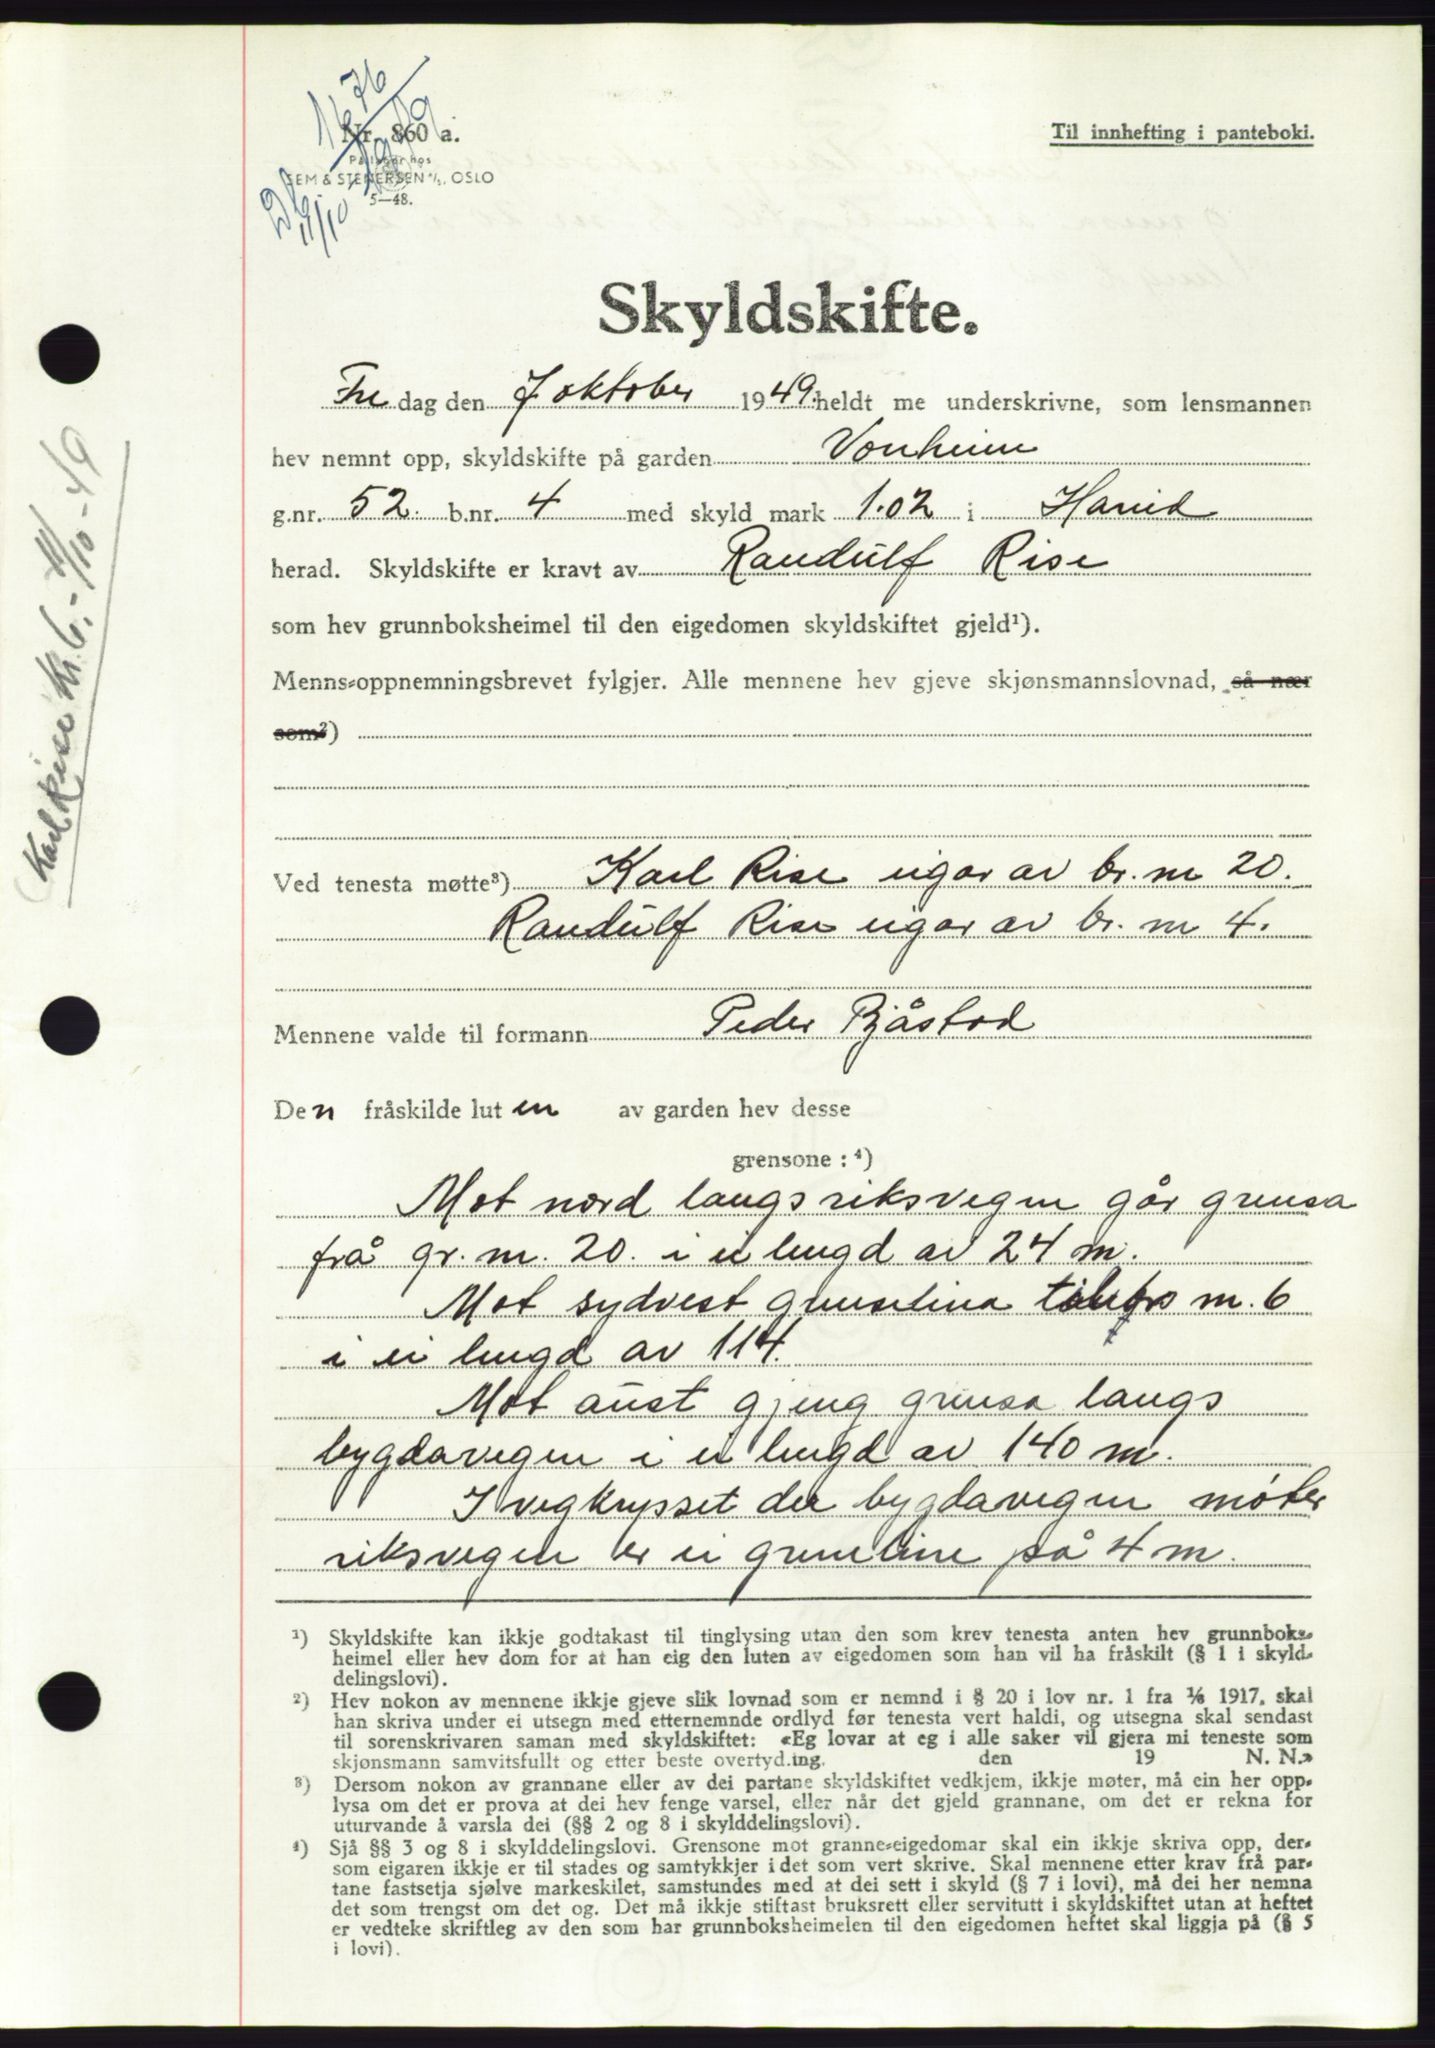 1676
1949
Nr. 860 a.
På lager hos
SEM & STENERSEN A/S, OSLO
5—48.
11/10
Til innhefting i panteboki.
Skyldskifte.
Fre dag den 7 oktober 1949. heldt me underskrivne, som lensmannen
hev nemnt opp, skyldskifte på garden Vonheim
g.nr. 52. b.nr. 4 med skyld mark 1.02 i Hareid
herad. Skyldskifte er kravt av Randulf Rise
som hev grunnboksheimel til den eigedomen skyldskiftet gjeld¹).
Menns-oppnemningsbrevet fylgjer. Alle mennene hev gjeve skjønsmannslovnad, så nær
som²)
Ved tenesta møtte³) Karl Rise eigar av br. nr 20.
Randulf Rise eigar av br. nr 4.
Mennene valde til formann Peder Bjåstad
Den fråskilde luten av garden hev desse
grensone: ⁴)
Mot nord langs riksvegen går grensa
frå gr. nr. 20. i ei lengd av 24 m.
Mot sydvest grenselina nr. 6
i ei lengd av 114.
Mot aust gjeng grensa langs
bygdavegen i ei lengd av 140 m.
I vegkrysset der bygdavegen møter
riksvegen er ei grenseline på 4 m.
Karl Rise kr. 6.- 11/10-49
¹) Skyldskifte kan ikkje godtakast til tinglysing utan den som krev tenesta anten hev grunnboks-
heimel eller hev dom for at han eig den luten av eigedomen som han vil ha fråskilt (§ 1 i skyld-
delingslovi).
²) Hev nokon av mennene ikkje gjeve slik lovnad som er nemnd i § 20 i lov nr. 1 fra 1/6 1917, skal
han skriva under ei utsegn med etternemnde ordlyd før tenesta vert haldi, og utsegna skal sendast
til sorenskrivaren saman med skyldskiftet: «Eg lovar at eg i alle saker vil gjera mi teneste som
skjønsmann samvitsfullt og etter beste overtyding. den 19 N. N.»
³) Dersom nokon av grannane eller av dei partane skyldskiftet vedkjem, ikkje møter, må ein her opp-
lysa om det er prova at dei hev fenge varsel, eller når det gjeld grannane, om det er rekna for
uturvande å varsla dei (§§ 2 og 8 i skylddelingslovi).
⁴) Sjå §§ 3 og 8 i skylddelingslovi. Grensone mot granne-eigedomar skal ein ikkje skriva opp, der-
som eigaren ikkje er til stades og samtykkjer i det som vert skrive. Skal mennene etter krav frå par-
tane fastsetja sjølve markeskilet, samstundes med at dei sett i skyld (§ 7 i lovi), må dei her nemna
det som trengst om det og. Det må ikkje stiftast bruksrett eller servitutt i skyldskiftet utan at heftet
er vedteke skriftleg av den som har grunnboksheimelen til den eigedomen heftet skal liggja på (§ 5
i lovi).